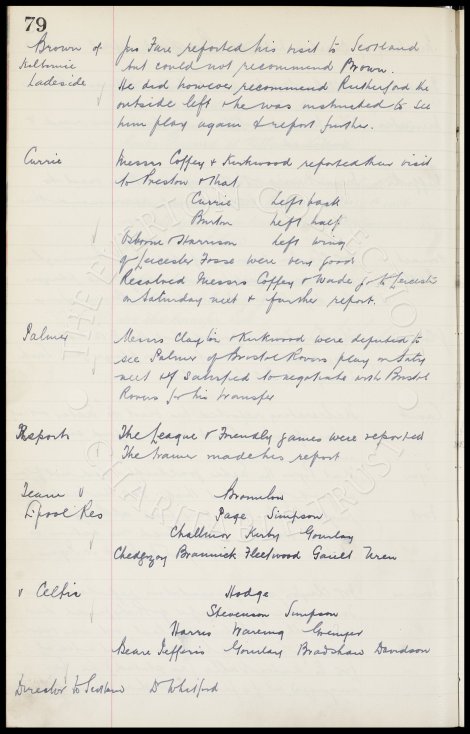 79
Brown of Jas Fare reported his visit to Scotland
Kilbirnie but could not recommend Brown.
Ladeside He did however recommend Rutherford the
outside left & he was instructed to see
him play again & report further.
Currie Messrs Coffey & Kirkwood reported their visit
to Preston & that
Currie Left back
Burton Left half
Osborne & Harrison Left wing
of Leicester Fosse were very good
Resolved Messrs Coffey & Wade go to Leicester
on Saturday next & further report.
Palmer Messrs Clayton & Kirkwood were deputed to
see Palmer of Bristol Rovers play on Satdy
next & if satisfied to negotiate with Bristol
Rovers for his transfer
Reports The League & Friendly games were reported
The trainer made his report
Team v Bromilow
L'pool Res Page Simpson
Challinor Kirby Gourlay
Chedgzoy Brannick Fleetwood Gault Uren
v Celtic Hodge
Stevenson Simpson
Harris Wareing Grenyer
Beare Jefferis Gourlay Bradshaw Davidson
Director to Scotland D Whitford
THE EVERTON COLLECTION
CHARITABLE TRUST